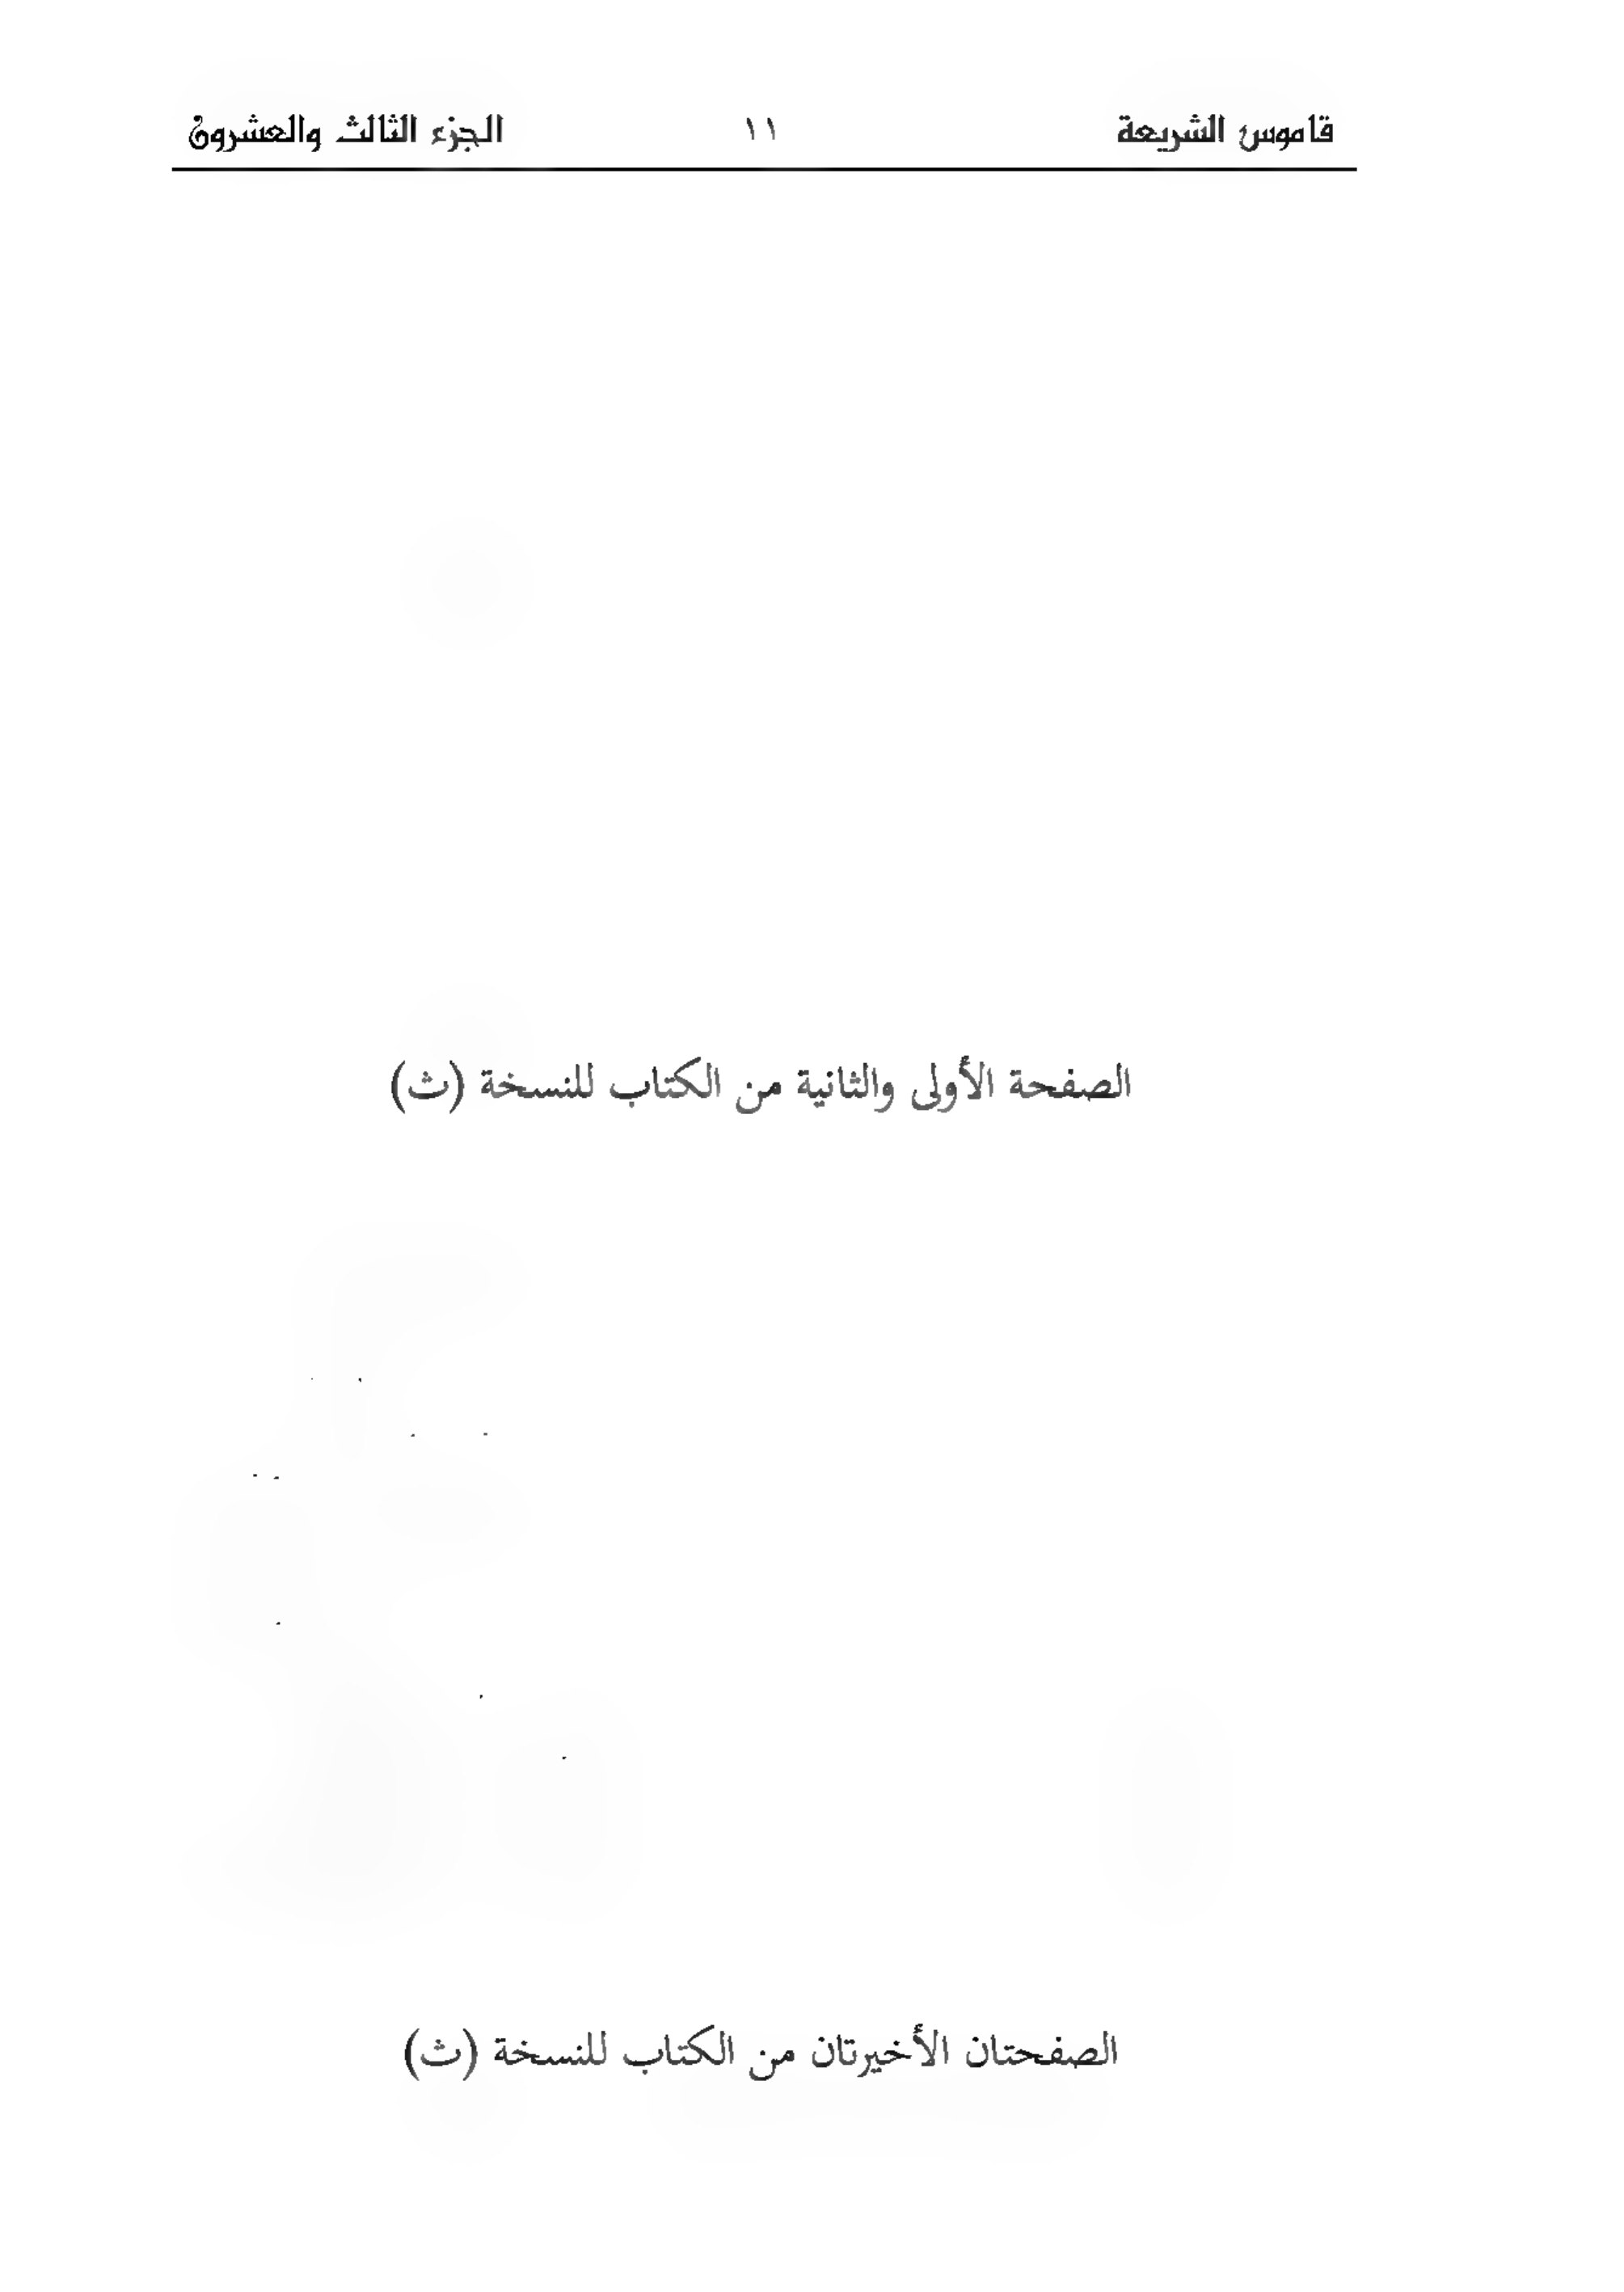 قاموس الشريعة ١١ الجزء الثالث والعشرون
الصفحة الأولى والثانية من الكتاب للنسخة (ث)
الصفحتان الأخيرتان من الكتاب للنسخة (ث)